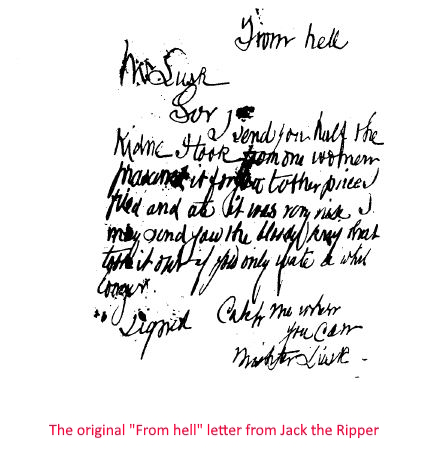 From hell
Mr Lusk
Sor
I send you half the
Kidne I took from one women
prasarved it for you tother piece I
fried and ate it was very nise I
may send you the bloody knif that
took it out if you only wate a whil
longer.
signed Catch me when
you Can
Mishter Lusk
The original "From hell" letter from Jack the Ripper